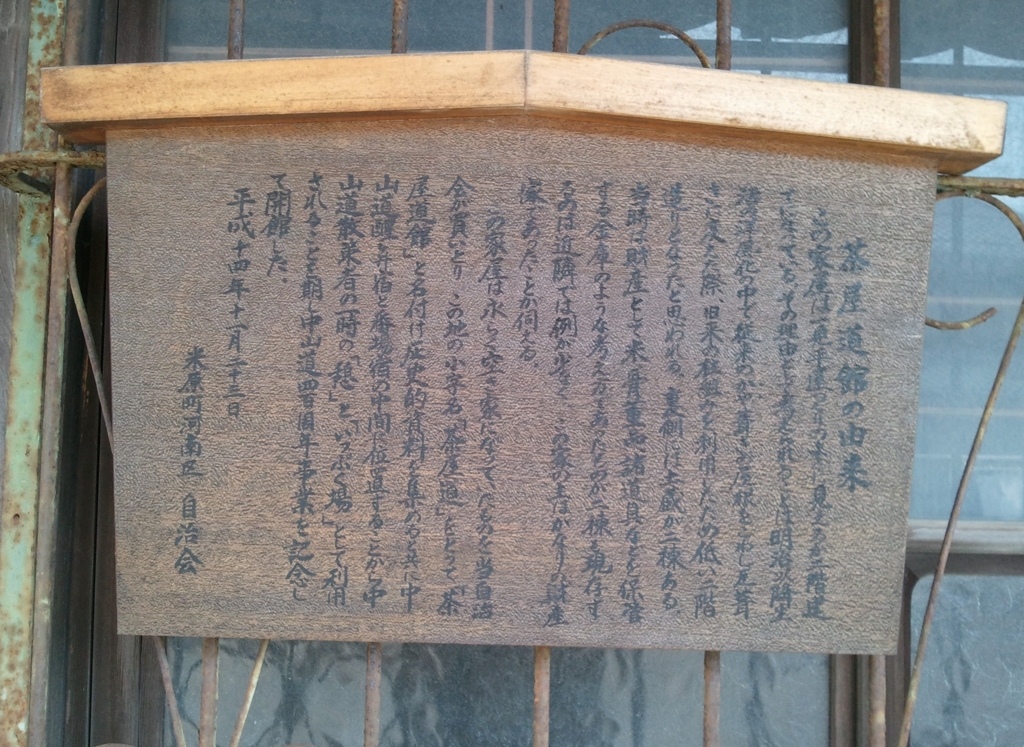 茶屋道館の由来
この家屋は一見平屋造りの様に見えるが二階建
てになっている。その理由として考えられることは明治以降生
活の洋風化の中で従来のかや葺きを屋根をこわし瓦葺
きに変えた際、旧来の骨組を利用したため低い二階
造りとなったと思われる。裏側には土蔵が二棟ある。
当時は財産として米・貴重品・諸道具などを保管
する金庫のような考え方であったものが二棟も現存す
るのは近隣では例が少なく、この家の主はかなりの財産
家であったことが伺える。
この家屋は永らく空き家になっていたものを当自治
会が買いとり この地の小字名「茶屋道」をとって「茶
屋道館」と名付け歴史的資料を集めると共に中
山道醒井宿と番場宿の中間に位置することから中
山道散策者の一時の「憩」と「いっぷく場」として利用
されることを期し中山道四百周年事業を記念し
て開館した。
平成十四年十一月二十三日
米原町河南区 自治会